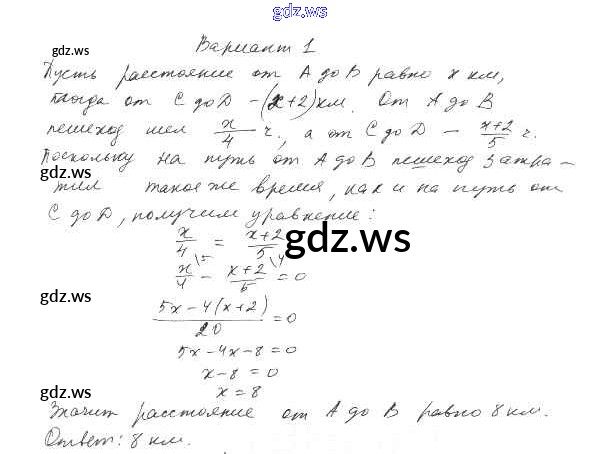 gdz.ws
gdz.ws
Вариант 1
Пусть расстояние от А до В равно x км,
тогда от С до D – (x+2) км. От А до В
пешеход шел x/4 ч, а от С до D – x+2/5 ч.
Поскольку на путь от А до В пешеход затра-
gdz.ws
тил такое же время, как и на путь от
С до D, получим уравнение:
x/4 = x+2/5
gdz.ws
x/4 \5 – x+2/5 \4 = 0
gdz.ws
5x – 4(x+2)/20 = 0
5x – 4x – 8 = 0
x – 8 = 0
gdz.ws
x = 8
Значит расстояние от А до В равно 8 км.
Ответ: 8 км.